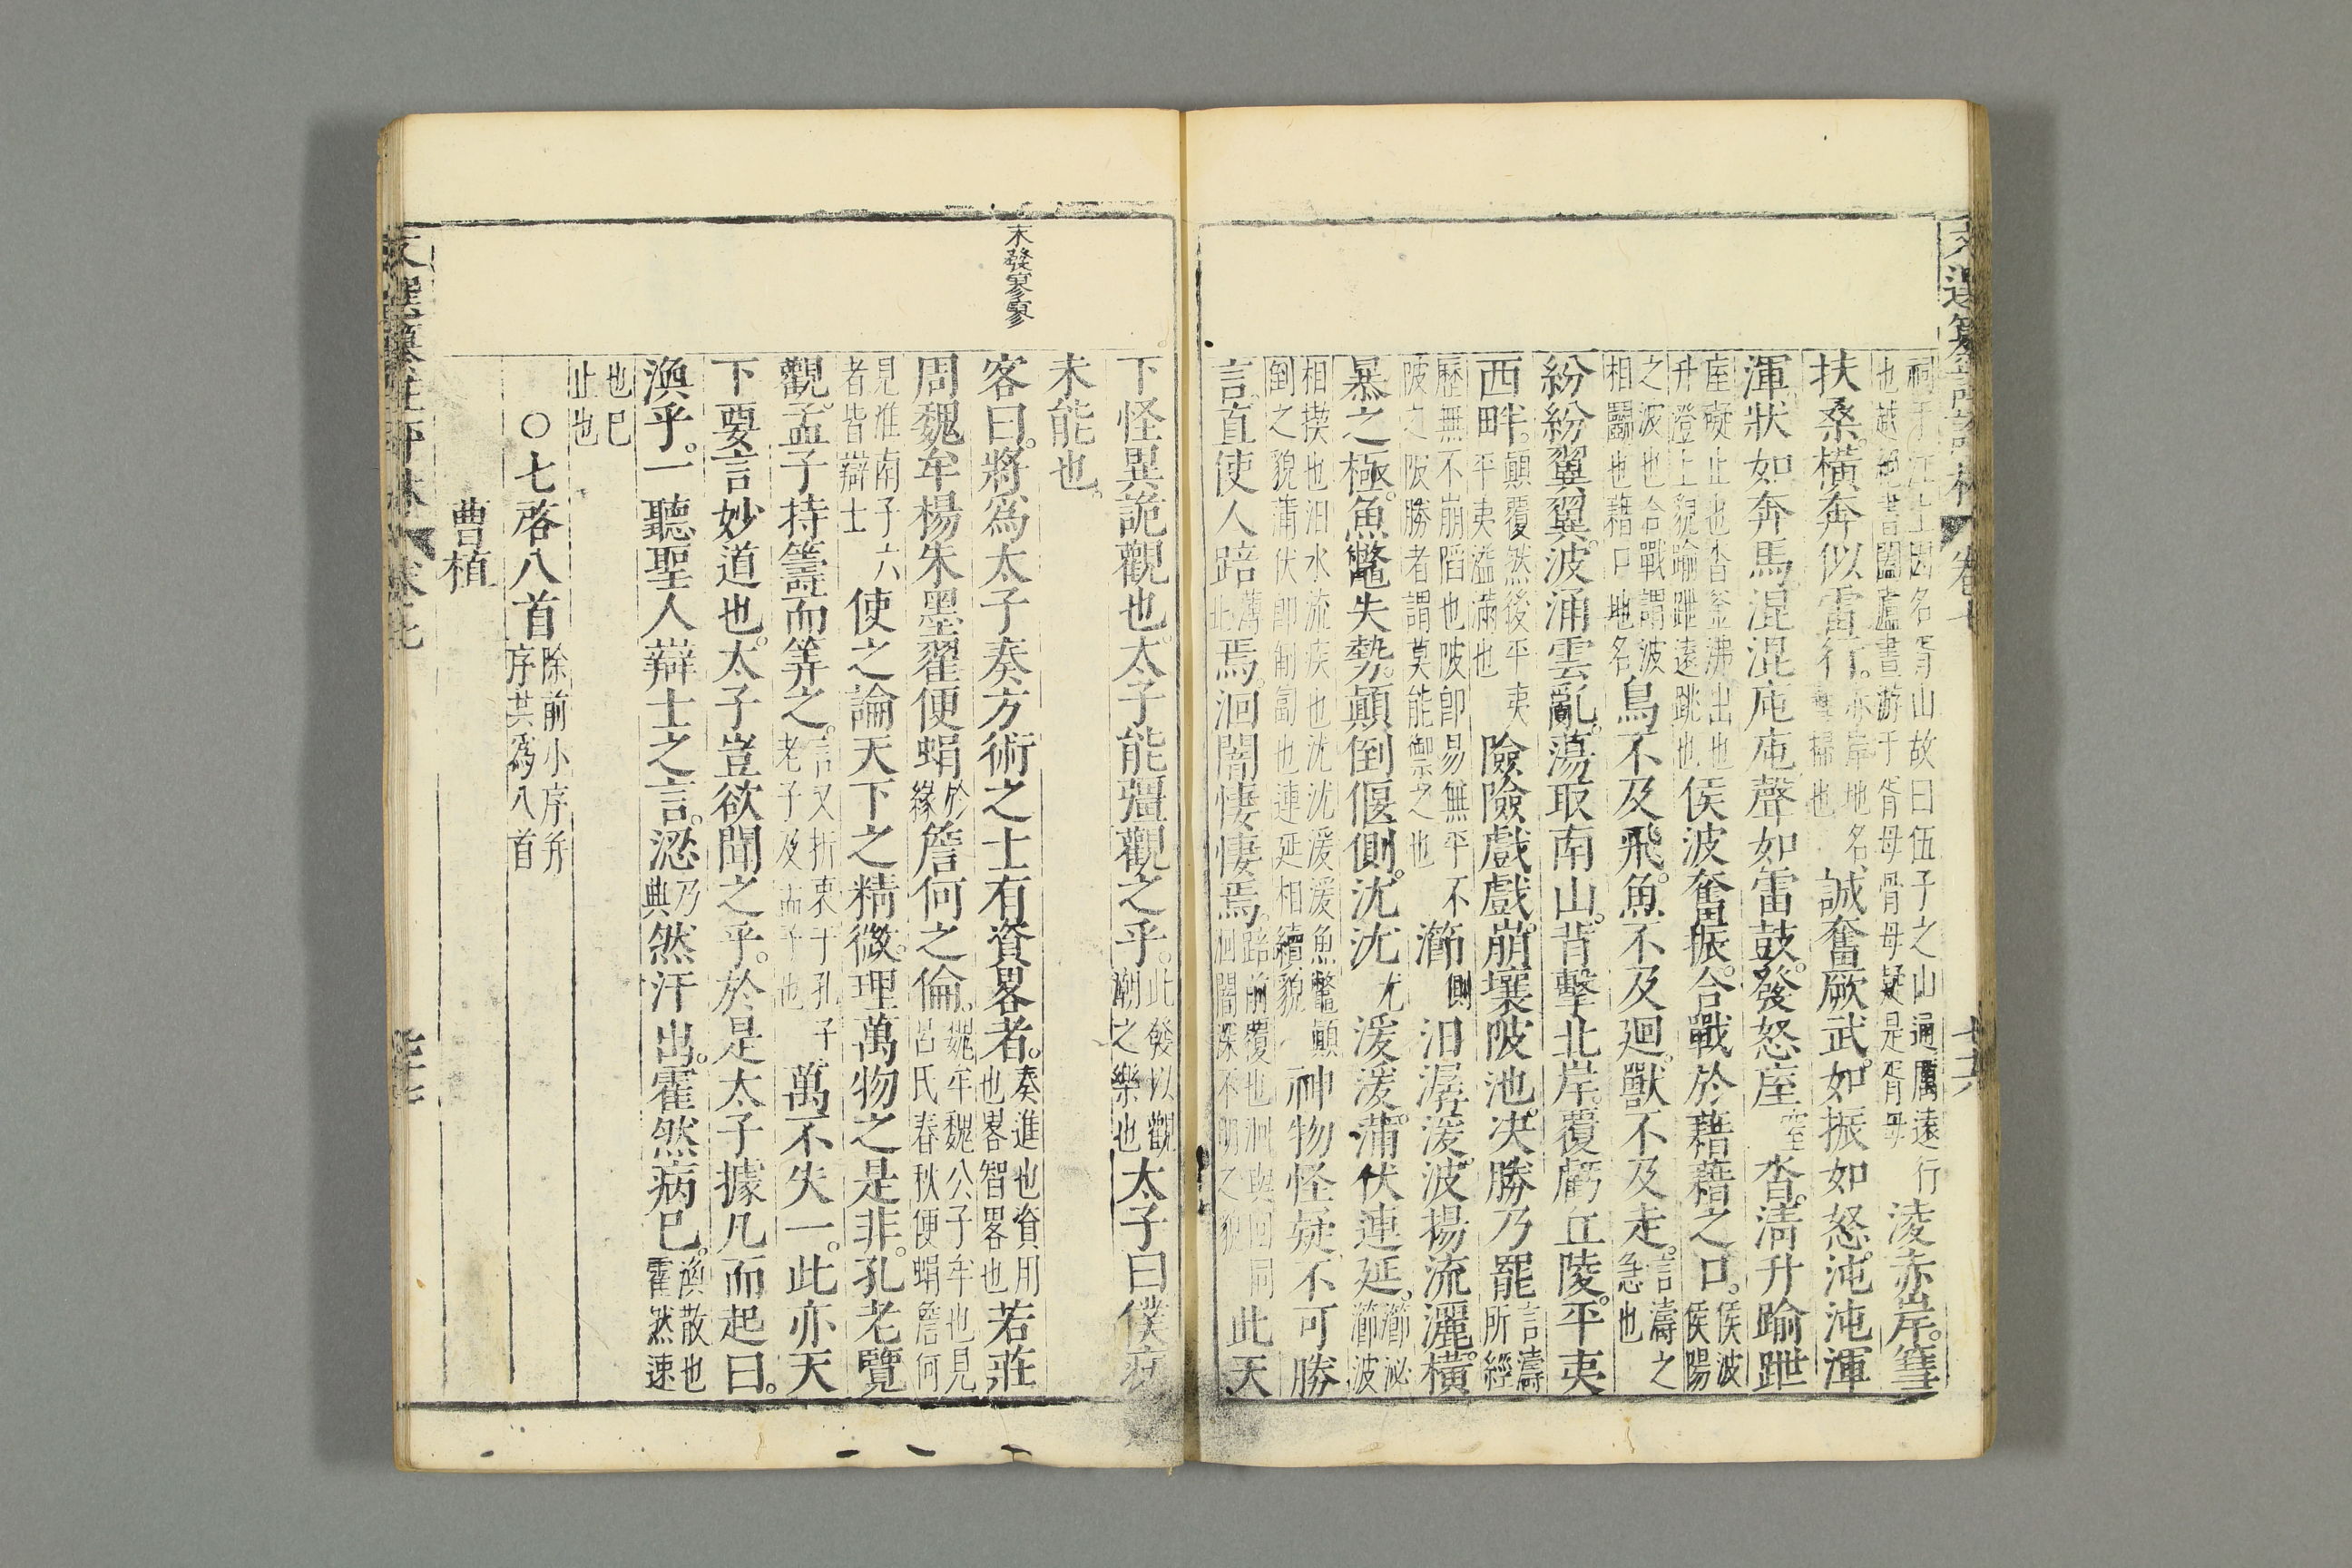 祠于江上因名胥山故曰伍子之山通厲遠行
也越絕書闔廬晝游于胥母骨母疑是胥母
淩赤岸。篲
扶桑。橫奔似雷行。
赤岸地名
篲掃也
誠奮厥武。如振如怒。沌沌渾
渾。狀如奔馬。混混庉庉。聲如雷鼓。發怒庢
窒
沓。淸升踰跇
庢礙止也沓釜沸出也
升澄上貌踰跇遠跳也
侯波奮振。合戰於藉藉之口。
侯波
侯陽
之波也合戰謂波
相鬭也藉口地名
鳥不及飛。魚不及廻。獸不及走。
言濤之
急也
紛紛翼翼。波涌雲亂。蕩取南山。背擊北岸。覆虧丘陵。平夷
西畔。
顛覆然後平夷
平夷溢滿也
險險戲戲。崩壞陂池。決勝乃罷
言濤
所經
歷無不崩䧟也陂卽易無平不
陂之陂勝者謂莫能禦之也
瀄
側
汩潺湲。波揚流灑。橫
暴之極。魚鼈失勢。顛倒偃側。沈沈
尤
湲湲。蒲伏連延。
瀄泌
瀄波
相揳也汩水流疾也沈沈湲湲魚鼈顛
倒之貌蒲伏卽匍匐也連延相續貌
神物怪疑。不可勝
言。直使人踣
蒲
北
焉。洄闇悽愴焉。
踣前覆也洄與回同
洄闇深不明之貌
此天
文選纂註評林
卷七
七十六
下怪異詭觀也。太子能彊觀之乎。
此發以觀
潮之樂也
太子曰僕病
未能也。
末發寥寥
客曰。將爲太子奏方術之士有資畧者。
奏進也資用
也畧智畧也
若莊
周魏牟楊朱墨翟便蜎
於
緣
詹何之倫。
魏牟魏公子牟也見
呂氏春秋便蜎詹何
見淮南子六
者皆辯士
使之論天下之精微。理萬物之是非。孔老覽
觀。孟子持籌而筭之。
言又折衷于孔子
老子及孟子也
萬不失一。此亦天
下要言妙道也。太子豈欲聞之乎。於是太子據几而起曰。
渙乎。一聽聖人辯士之言。涊
乃
典
然汗出。霍然病已。
渙散也
霍然速
也已
止也
○七啓八首
除前小序幷
序其爲八首
曹植
文選纂註評林
卷七
七十七